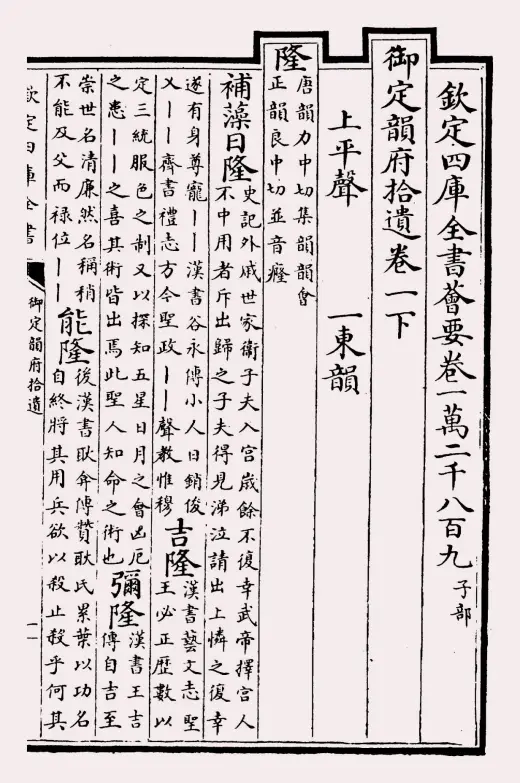 欽定四庫全書薈要卷一萬二千八百九 子部
御定韻府拾遺卷一下
上平聲 一東韻
隆 唐韻力中切集韻韻會
正韻良中切並音癃
補藻日隆 史記外戚世家衞子夫入宮歲餘不復幸武帝擇宮人
不中用者斥出歸之子夫得見涕泣請出上憐之復幸
遂有身尊寵丨丨漢書谷永傳小人日銷俊
乂丨丨齊書禮志方今聖政丨丨聲教惟穆
吉隆 漢書藝文志聖
王必正歷數以
定三統服色之制又以探知五星日月之會凶厄
之患丨丨之喜其術皆出焉此聖人知命之術也
彌隆 漢書王吉
傳自吉至
崇世名清廉然名稱稍
不能及父而祿位丨丨
能隆 後漢書耿弇傳贊耿氏累葉以功名
自終將其用兵欲以殺止殺乎何其
欽定四庫全書
御定韻府拾遺
一